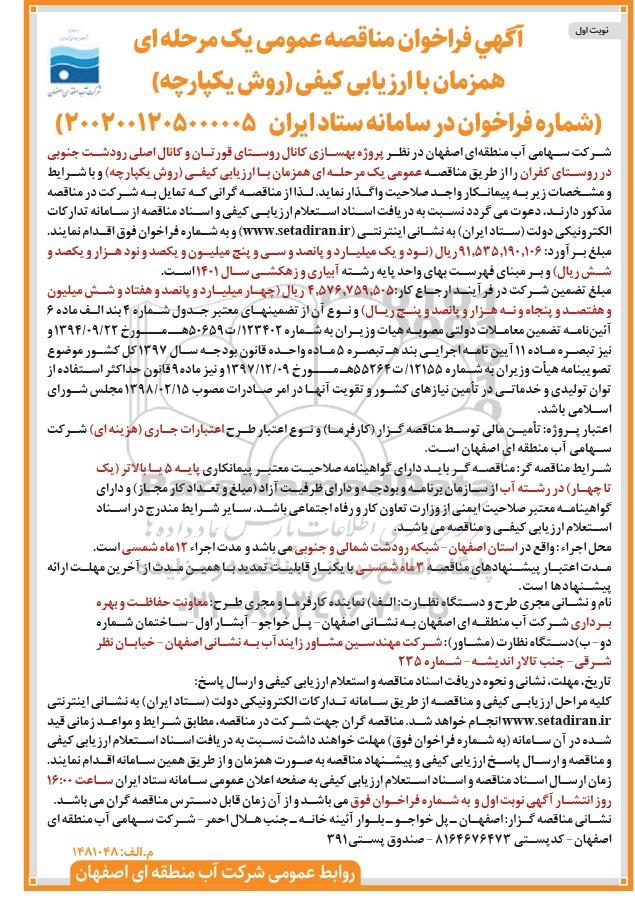 نوبت اول
آگهي فراخوان مناقصه عمومی یک مرحله ای
همزمان با ارزیابی کیفی (روش یکپارچه)
(شماره فراخوان در سامانه ستاد ایران ۲۰۰۲۰۰۱۲۰۵۰۰۰۰۰۵)
شرکت آب منطقه ای اصفهان
شرکت سهامی آب منطقه‌ای اصفهان در نظر پروژه بهسازی کانال روستای قورتان و کانال اصلی رودشت جنوبی
در روستای کفران را از طریق مناقصه عمومی یک مرحله ای همزمان با ارزیابی کیفی (روش یکپارچه) و با شرایط
و مشخصات زیر به پیمانکار واجد صلاحیت واگذار نماید. لذا از مناقصه گرانی که تمایل به شرکت در مناقصه
مذکور دارند، دعوت می گردد نسبت به دریافت اسناد استعلام ارزیابی کیفی و اسناد مناقصه از سامانه تدارکات
الکترونیکی دولت (ستاد ایران) به نشانی اینترنتی (www.setadiran.ir) و به شماره فراخوان فوق اقدام نمایند.
مبلغ برآورد: ۹۱,۵۳۵,۱۹۰,۱۰۶ ریال (نود و یک میلیارد و پانصد و سی و پنج میلیون و یکصد و نود هزار و یکصد و
شش ریال) و بر مبنای فهرست بهای واحد پایه رشته آبیاری و زهکشی سال ۱۴۰۱ است.
مبلغ تضمین شرکت در فرآیند ارجاع کار: ۴,۵۷۶,۷۵۹,۵۰۵ ریال (چهار میلیارد و پانصد و هفتاد و شش میلیون
و هفتصد و پنجاه و نه هزار و پانصد و پنج ریال) و نوع آن از تضمینهای معتبر جدول شماره ۴ بند الف ماده ۶
آئین‌نامه تضمین معاملات دولتی مصوبه هیات وزیران به شماره ۱۲۳۴۰۲/ت۵۰۶۵۹هـ مورخ ۱۳۹۴/۰۹/۲۲ و
نیز تبصره ماده ۱۱ آیین نامه اجرایی بند هـ تبصره ۵ ماده واحده قانون بودجه سال ۱۳۹۷ کل کشور موضوع
تصویبنامه هیأت وزیران به شماره ۱۲۱۵۵/ت۵۵۲۶۴هـ مورخ ۱۳۹۷/۱۲/۰۹ و نیز ماده ۹ قانون حداکثر استفاده از
توان تولیدی و خدماتی در تأمین نیازهای کشور و تقویت آنها در امر صادرات مصوب ۱۳۹۸/۰۲/۱۵ مجلس شورای
اسلامی باشد.
اعتبار پروژه: تأمین مالی توسط مناقصه گزار (کارفرما) و نوع اعتبار طرح اعتبارات جاری (هزینه ای) شرکت
سهامی آب منطقه ای اصفهان است.
شرایط مناقصه گر: مناقصه گر باید دارای گواهینامه صلاحیت معتبر پیمانکاری پایه ۵ یا بالاتر (یک
تا چهار) در رشته آب از سازمان برنامه و بودجه و دارای ظرفیت آزاد (مبلغ و تعداد کار مجاز) و دارای
گواهینامه معتبر صلاحیت ایمنی از وزارت تعاون کار و رفاه اجتماعی باشد. سایر شرایط مندرج در اسناد
استعلام ارزیابی کیفی و مناقصه می باشد.
محل اجراء: واقع در استان اصفهان - شبکه رودشت شمالی و جنوبی می باشد و مدت اجراء ۱۲ ماه شمسی است.
مدت اعتبار پیشنهادهای مناقصه ۳ ماه شمسی با یکبار قابلیت تمدید با همین مدت از آخرین مهلت ارائه
پیشنهادها است.
نام و نشانی مجری طرح و دستگاه نظارت: (الف) نماینده کارفرما و مجری طرح: معاونت حفاظت و بهره
برداری شرکت آب منطقه ای اصفهان به نشانی اصفهان - پل خواجو - آبشار اول - ساختمان شماره
دو - ب) دستگاه نظارت (مشاور): شرکت مهندسین مشاور زایندآب به نشانی اصفهان - خیابان نظر
شرقی - جنب تالار اندیشه - شماره ۲۳۵
تاریخ، مهلت، نشانی و نحوه دریافت اسناد مناقصه و استعلام ارزیابی کیفی و ارسال پاسخ:
کلیه مراحل ارزیابی کیفی و مناقصه از طریق سامانه تدارکات الکترونیکی دولت (ستاد ایران) به نشانی اینترنتی
www.setadiran.ir انجام خواهد شد. مناقصه گران جهت شرکت در مناقصه، مطابق شرایط و مواعد زمانی قید
شده در آن سامانه (به شماره فراخوان فوق) مهلت خواهند داشت نسبت به دریافت اسناد استعلام ارزیابی کیفی
و مناقصه و ارسال پاسخ ارزیابی کیفی و پیشنهاد مناقصه به صورت همزمان و از طریق همین سامانه اقدام نمایند.
زمان ارسال اسناد مناقصه و اسناد استعلام ارزیابی کیفی به صفحه اعلان عمومی سامانه ستاد ایران ساعت ۱۶:۰۰
روز انتشار آگهی نوبت اول و به شماره فراخوان فوق می باشد و از آن زمان قابل دسترس مناقصه گران می باشد.
نشانی مناقصه گزار: اصفهان - پل خواجو - بلوار آئینه خانه - جنب هلال احمر - شرکت سهامی آب منطقه ای
اصفهان - کدپستی ۸۱۶۴۶۷۶۴۷۳ - صندوق پستی ۳۹۱
م.الف: ۱۴۸۱۰۴۸
روابط عمومی شرکت آب منطقه ای اصفهان